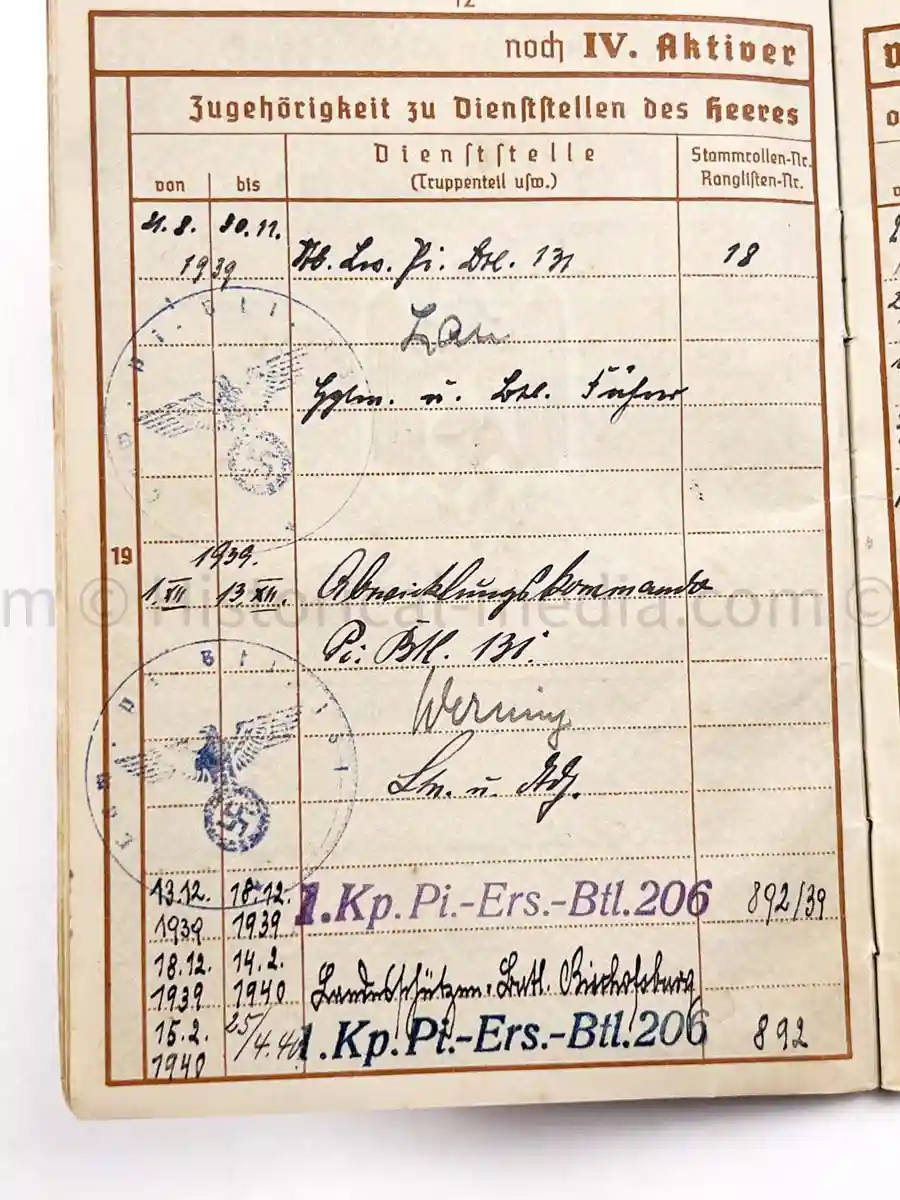 12
noch IV. Aktiver
Zugehörigkeit zu Dienststellen des Heeres
von bis Dienststelle (Truppenteil usw.) Stammrollen-Nr. Ranglisten-Nr.
21.8. 30.11.
1939
Pi. Btl. 131 18
Hptm. u. Btl. Führer
19
1939.
1.XII 13.XII. Abwicklungskommando
Pi. Btl. 131.
Werning
Ltn. u. Adj.
13.12. 18.12.
1939 1939 1.Kp.Pi.-Ers.-Btl.206 892/39
18.12. 14.2.
1939 1940 Landesschützen-Batl. Bischofsburg
15.2. 25/4.40 1.Kp.Pi.-Ers.-Btl.206 892
1940
m © Historical-media.com ©